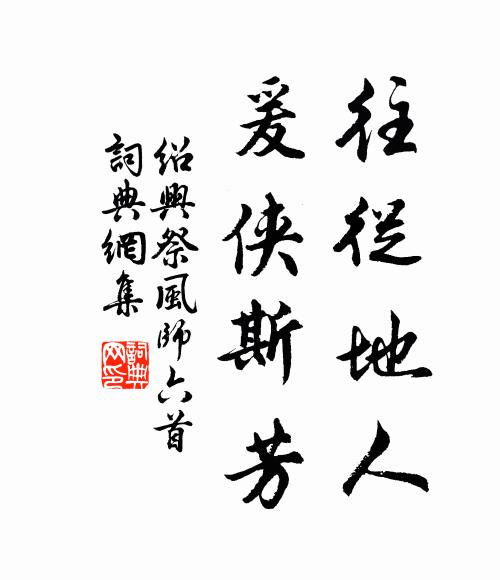 往從地人
爰俠斯芳
紹興祭風師六首
詞典網集
詞典網印